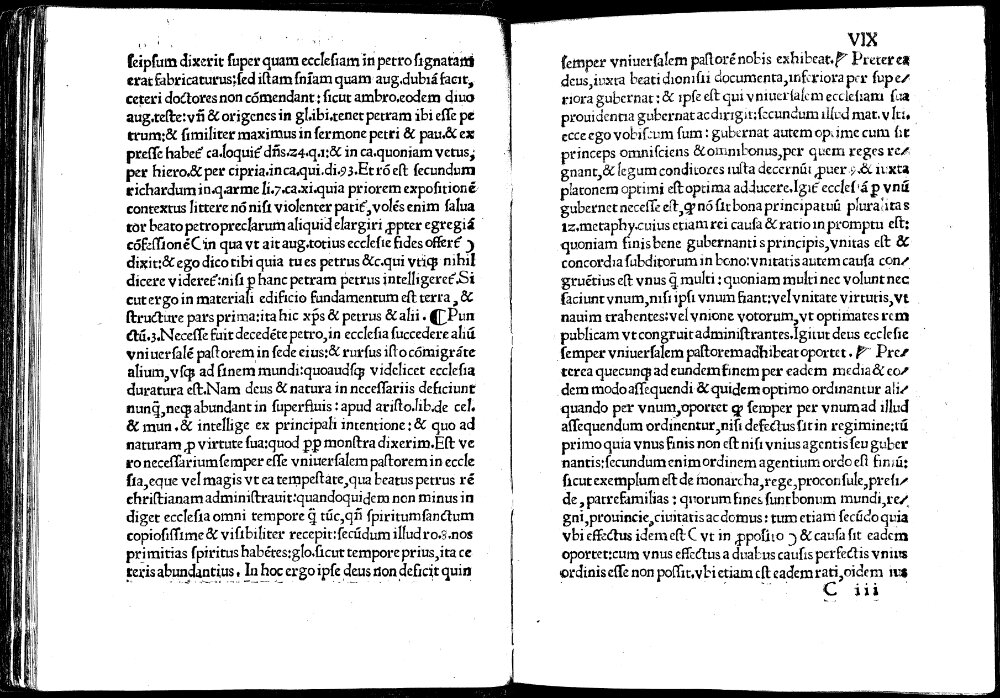 seipsum dixerit super quam ecclesiam in petro signatam
erat fabricaturus:sed istam sniam quam aug.dubiā facit,
ceteri doctores non cōmendant: sicut ambro.eodem diuo
aug.teste:vñ & origenes in gl.ibi.tenet petram ibi esse pe
trum:& similiter maximus in sermone petri & pau.& ex
presse habet̄ ca.loquit̄ dñs.24.q.1:& in ca.quoniam vetus,
per hiero.& per cipria.in ca.qui.di.93.Et rō est secundum
richardum in.q.arme li.7.ca.xi.quia priorem expositionē
contextus littere nō nisi violenter patit̄, volēs enim salua
tor beato petro preclarum aliquid elargiri ꝓpter egregiā
cōfessionē C in qua vt ait aug.totius ecclesie fides offert̄ ↄ
dixit:& ego dico tibi quia tu es petrus &c.qui vtiqꝫ nihil
dicere videret̄:nisi ꝑ hanc petram petrus intelligeret̄.Si
cut ergo in materiali edificio fundamentum est terra, &
structure pars prima:ita hic xp̄s & petrus & alii. ¶ Pun
ctū.3.Necesse fuit decedēte petro, in ecclesia succedere aliū
vniuersalē pastorem in sede eius:& rursus isto cōmigrāte
alium, vsqꝫ ad finem mundi:quoadusqꝫ videlicet ecclesia
duratura est.Nam deus & natura in necessariis deficiunt
nunq̄, neqꝫ abundant in superfluis: apud aristo.lib.de cel.
& mun. & intellige ex principali intentione: & quo ad
naturam, ꝓ virtute sua:quod ꝓp̄ monstra dixerim.Est ve
ro necessarium semper esse vniuersalem pastorem in eccle
sia, eque vel magis vt ea tempestate, qua beatus petrus rē
christianam administrauit:quandoquidem non minus in
diget ecclesia omni tempore q̄ tūc, qñ spiritum sanctum
copiosissime & visibiliter recepit:secūdum illud ro.8.nos
primitias spiritus habētes:glo.sicut tempore prius, ita ce
teris abundantius. In hoc ergo ipse deus non deficit quin
VIX
semper vniuersalem pastorē nobis exhibeat. Preterea
deus, iuxta beati dionisii documenta, inferiora per supe/
riora gubernat: & ipse est qui vniuersalem ecclesiam sua
prouidentia gubernat ac dirigit: secundum illud mat.vlti.
ecce ego vobiscum sum: gubernat autem optime cum sit
princeps omnisciens & omnibonus, per quem reges re/
gnant, & legum conditores iusta decernūt, puer.8.& iuxta
platonem optimi est optima adducere.Igit̄ ecclesiā ꝑ vnū
gubernet necesse est, qꝫ nō sit bona principatuū pluralitas
12.metaphy.cuius etiam rei causa & ratio in promptu est:
quoniam finis bene gubernantis principis, vnitas est &
concordia subditorum in bono: vnitatis autem causa con/
gruētius est vnus q̄ multi: quoniam multi nec volunt nec
faciunt vnum, nisi ipsi vnum fiant: vel vnitate virtutis, vt
nauim trahentes: vel vnione votorum, vt optimates rem
publicam vt congruit administrantes.Igitur deus ecclesie
semper vniuersalem pastorem adhibeat oportet. Pre/
terea quecunqꝫ ad eundem finem per eadem media & eo/
dem modo assequendi & quidem optimo ordinantur ali/
quando per vnum, oportet qꝫ semper per vnum ad illud
assequendum ordinentur, nisi defectus sit in regimine: tū
primo quia vnus finis non est nisi vnius agentis seu guber
nantis: secundum enim ordinem agentium ordo est finiū:
sicut exemplum est de monarcha, rege, proconsule, presi/
de, patrefamilias: quorum fines sunt bonum mundi, re/
gni, prouincie, ciuitatis ac domus: tum etiam secūdo quia
vbi effectus idem est C vt in ꝓposito ↄ & causa sit eadem
oportet: cum vnus effectus a duabus causis perfectis vnius
ordinis esse non possit. vbi etiam est eadem rati, oidem ius
C iii